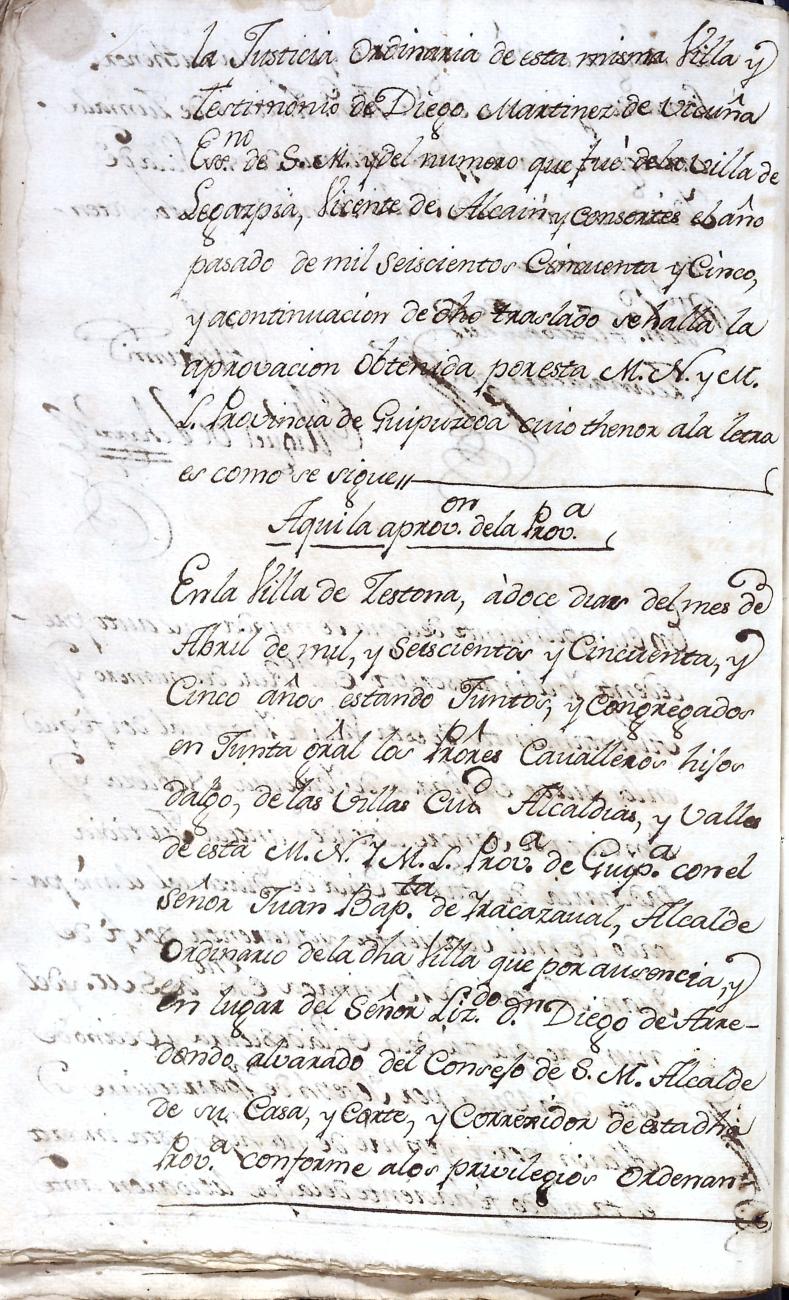 la Justicia Ordinaria de esta misma Villa y
Testimonio de Diego Martinez de Vicuña
Esc.no de S. M. y del numero que fué dela Villa de
Legazpia, Vicente de Alcain y consortes el año
pasado de mil Seiscientos Cinquenta y Cinco,
y acontinuacion de dho traslado se halla la
aprovacion Obtenida por esta M. N. y M.
L. Provincia de Guipuzcoa cuio thenor ala letra
es como se sigue
Aqui la aprov.on dela Prov.a
En la Villa de Zestona, à doce dias del mes de
Abril de mil, y Seiscientos y Cincuenta, y
Cinco años estando Juntos, y Congregados
en Junta grâl los Prores Cavalleros hijos
dalgo, de las Villas Ciud Alcaldias, y Valles
de esta M. N. y M. L. Prov.a de Guip.a con el
señor Juan Bap.ta de Yracazaval, Alcalde
Ordinario de la dha Villa que por ausencia, y
en lugar del Señor Liz.do d.n Diego de Arre-
dondo alvarado del Consejo de S. M. Alcalde
de su Casa, y Corte, y Corregidor de esta dha
Prov.a conforme alos privilegios Ordenan-